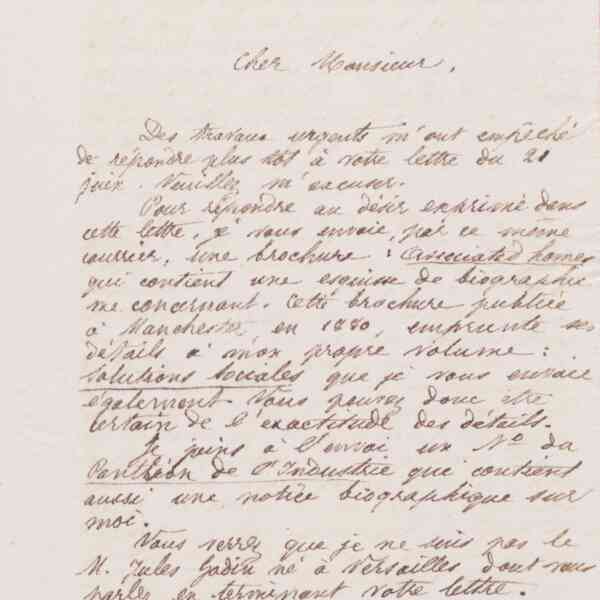 Cher Monsieur,
Des travaux urgents m'ont empêché
de répondre plus tôt à votre lettre du 21
juin. Veuillez m'excuser.
Pour répondre au désir exprimé dans
cette lettre, je vous envoie, par ce même
courrier, une brochure : Associated homes
qui contient une esquisse de biographie
me concernant. Cette brochure publiée
à Manchester en 1880, emprunte ses
détails à mon propre volume :
Solutions sociales que je vous envoie
également. Vous pouvez donc être
certain de l'exactitude des détails.
Je joins à l'envoi un No du
Panthéon de l'Industrie qui contient
aussi une notice biographique sur
moi.
Vous verrez que je ne suis pas le
M. Jules Godin né à Versailles dont vous
parlez en terminant votre lettre.